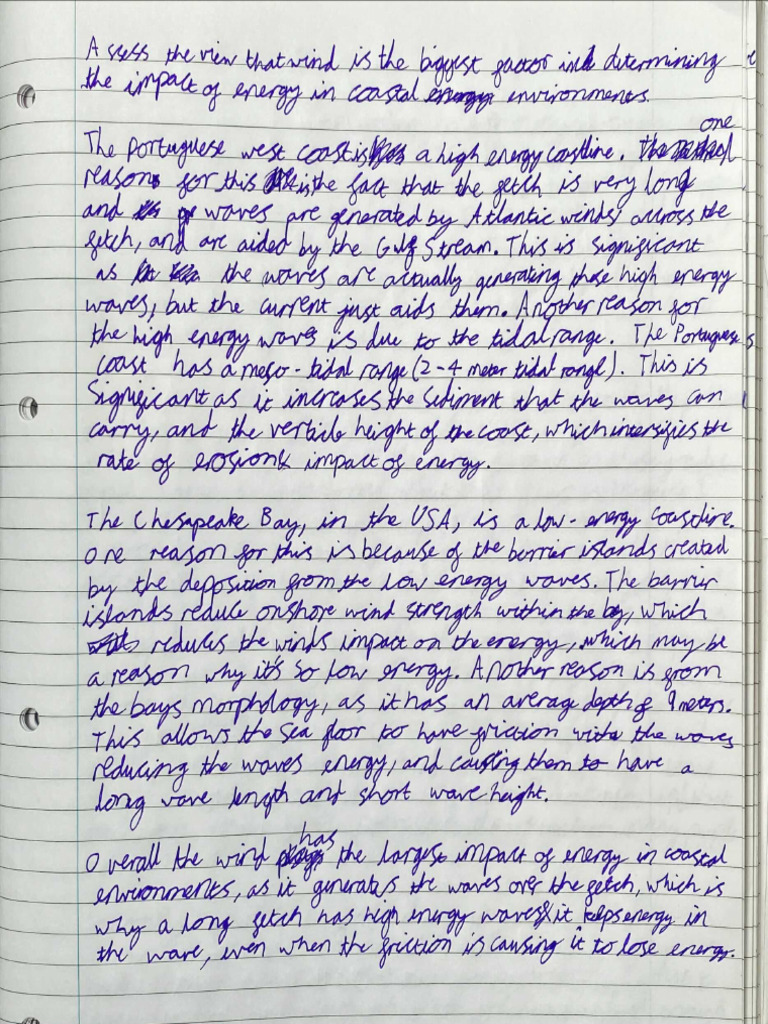 Assess the view that wind is the biggest factor in determining
the impact of energy in coastal environments.
one
The Portuguese west coast is a high energy coastline.
reason for this is the fact that the fetch is very long
and waves are generated by Atlantic winds across the
fetch, and are aided by the Gulf Stream. This is significant
as the waves are actually generating those high energy
waves, but the current just aids them. Another reason for
the high energy waves is due to the tidal range. The Portuguese
coast has a meso-tidal range (2-4 meter tidal range). This is
significant as it increases the sediment that the waves can
carry, and the verticle height of the coast, which intensifies the
rate of erosion & impact of energy.
The Chesapeake Bay, in the USA, is a low-energy coastline.
One reason for this is because of the barrier islands created
by the deposition from the low energy waves. The barrier
islands reduce onshore wind strength within the bay, which
reduces the winds impact on the energy, which may be
a reason why it's so low energy. Another reason is from
the bays morphology, as it has an average depth of 9 meters.
This allows the sea floor to have friction with the waves
reducing the waves energy, and causing them to have a
long wave length and short wave height.
has
Overall the wind the largest impact of energy in coastal
environments, as it generates the waves over the fetch, which is
why a long fetch has high energy waves, it keeps energy in
the wave, even when the friction is causing it to lose energy.